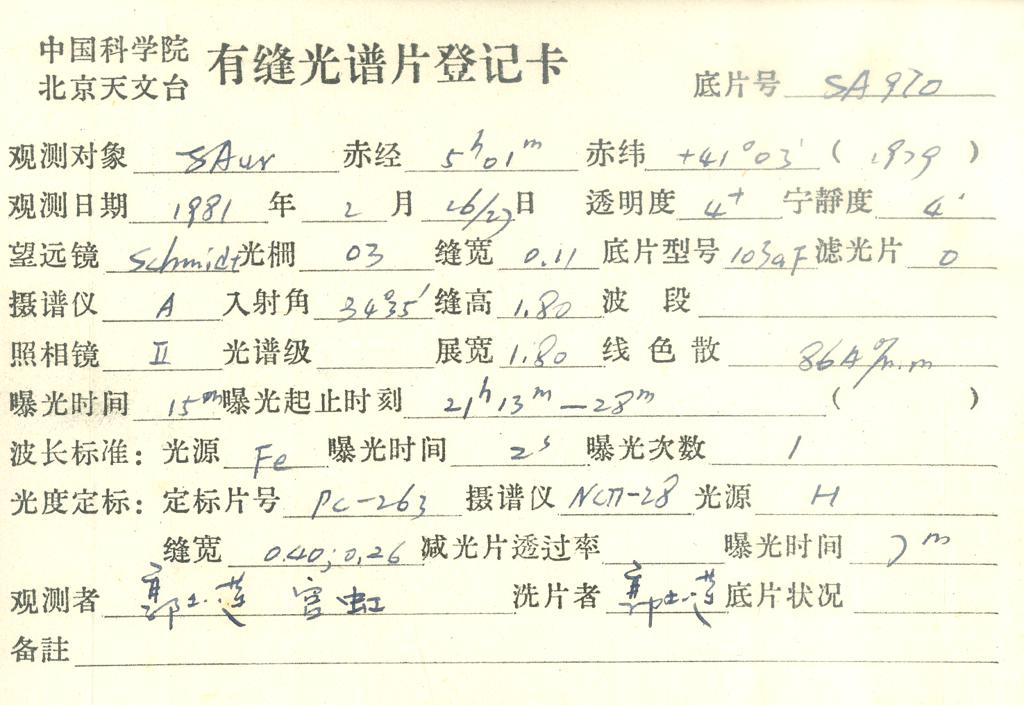 中国科学院
北京天文台
有缝光谱片登记卡
底片号 SA970
观测对象 SAur 赤经 5h01m 赤纬 +41°03′ ( 1979 )
观测日期 1981 年 2 月 26/27 日 透明度 4+ 宁静度 4
望远镜 Schmidt 光栅 03 缝宽 0.11 底片型号 103aF 滤光片 0
摄谱仪 A 入射角 34°35′ 缝高 1.80 波段
照相镜 II 光谱级 展宽 1.80 线色散 86A°/m.m
曝光时间 15m 曝光起止时刻 21h13m—28m ( )
波长标准：光源 Fe 曝光时间 2s 曝光次数 1
光度定标：定标片号 PC-263 摄谱仪 光源 H
缝宽 0.40;0.26 减光片透过率 曝光时间
观测者 宫虹 洗片者 底片状况
备註